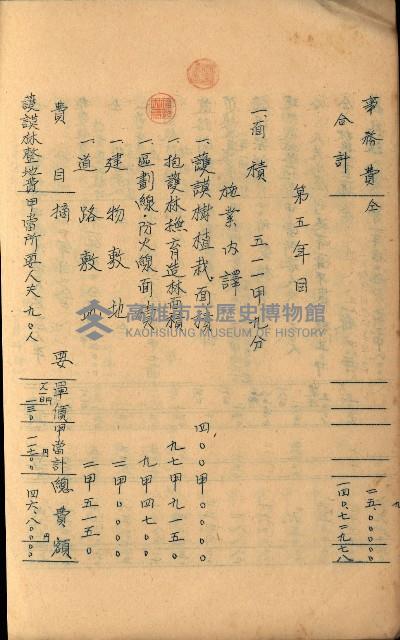 事務費 仝 二五〇.〇〇〇
合計 一四〇.〇七二九七八
第五年目
一、面積 五一一甲九分
施業內譯
一、護謨樹植栽面積 四〇〇甲〇〇〇〇
一、抱護林撫育造林面積 九七甲九一五〇
一、區劃線・防火線面積 九甲四七〇〇
一、建物敷地 二甲〇〇〇〇
一、道路敷地 二甲五一五〇
費目 摘要 單價 甲當計 總費額
護謨林整地費 甲當所要人夫九〇人
高雄市立歷史博物館
KAOHSIUNG MUSEUM OF HISTORY